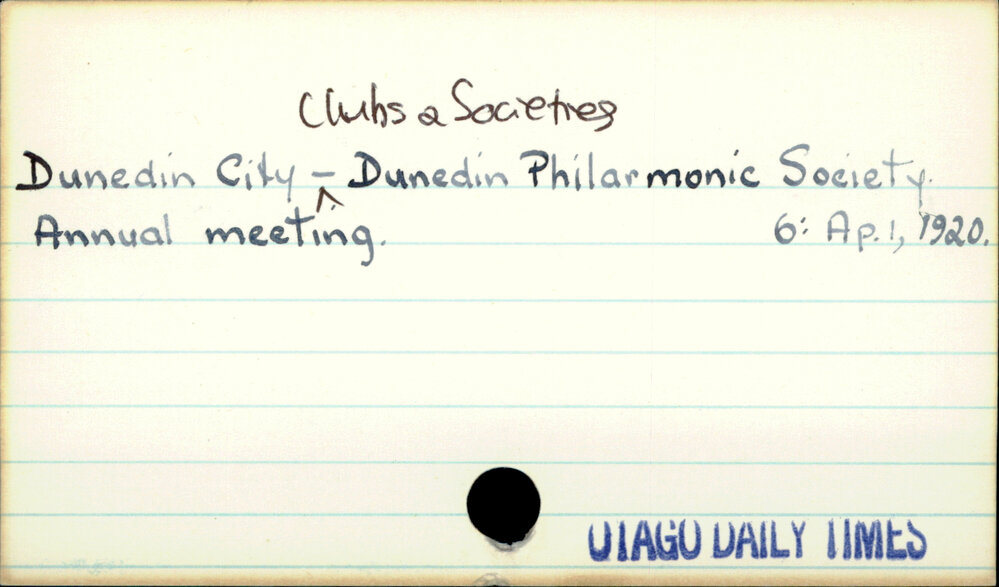 Clubs & Societies
Dunedin City – Dunedin Philarmonic Society.
^
Annual meeting. 6: Ap. 1, 1920.
OTAGO DAILY TIMES